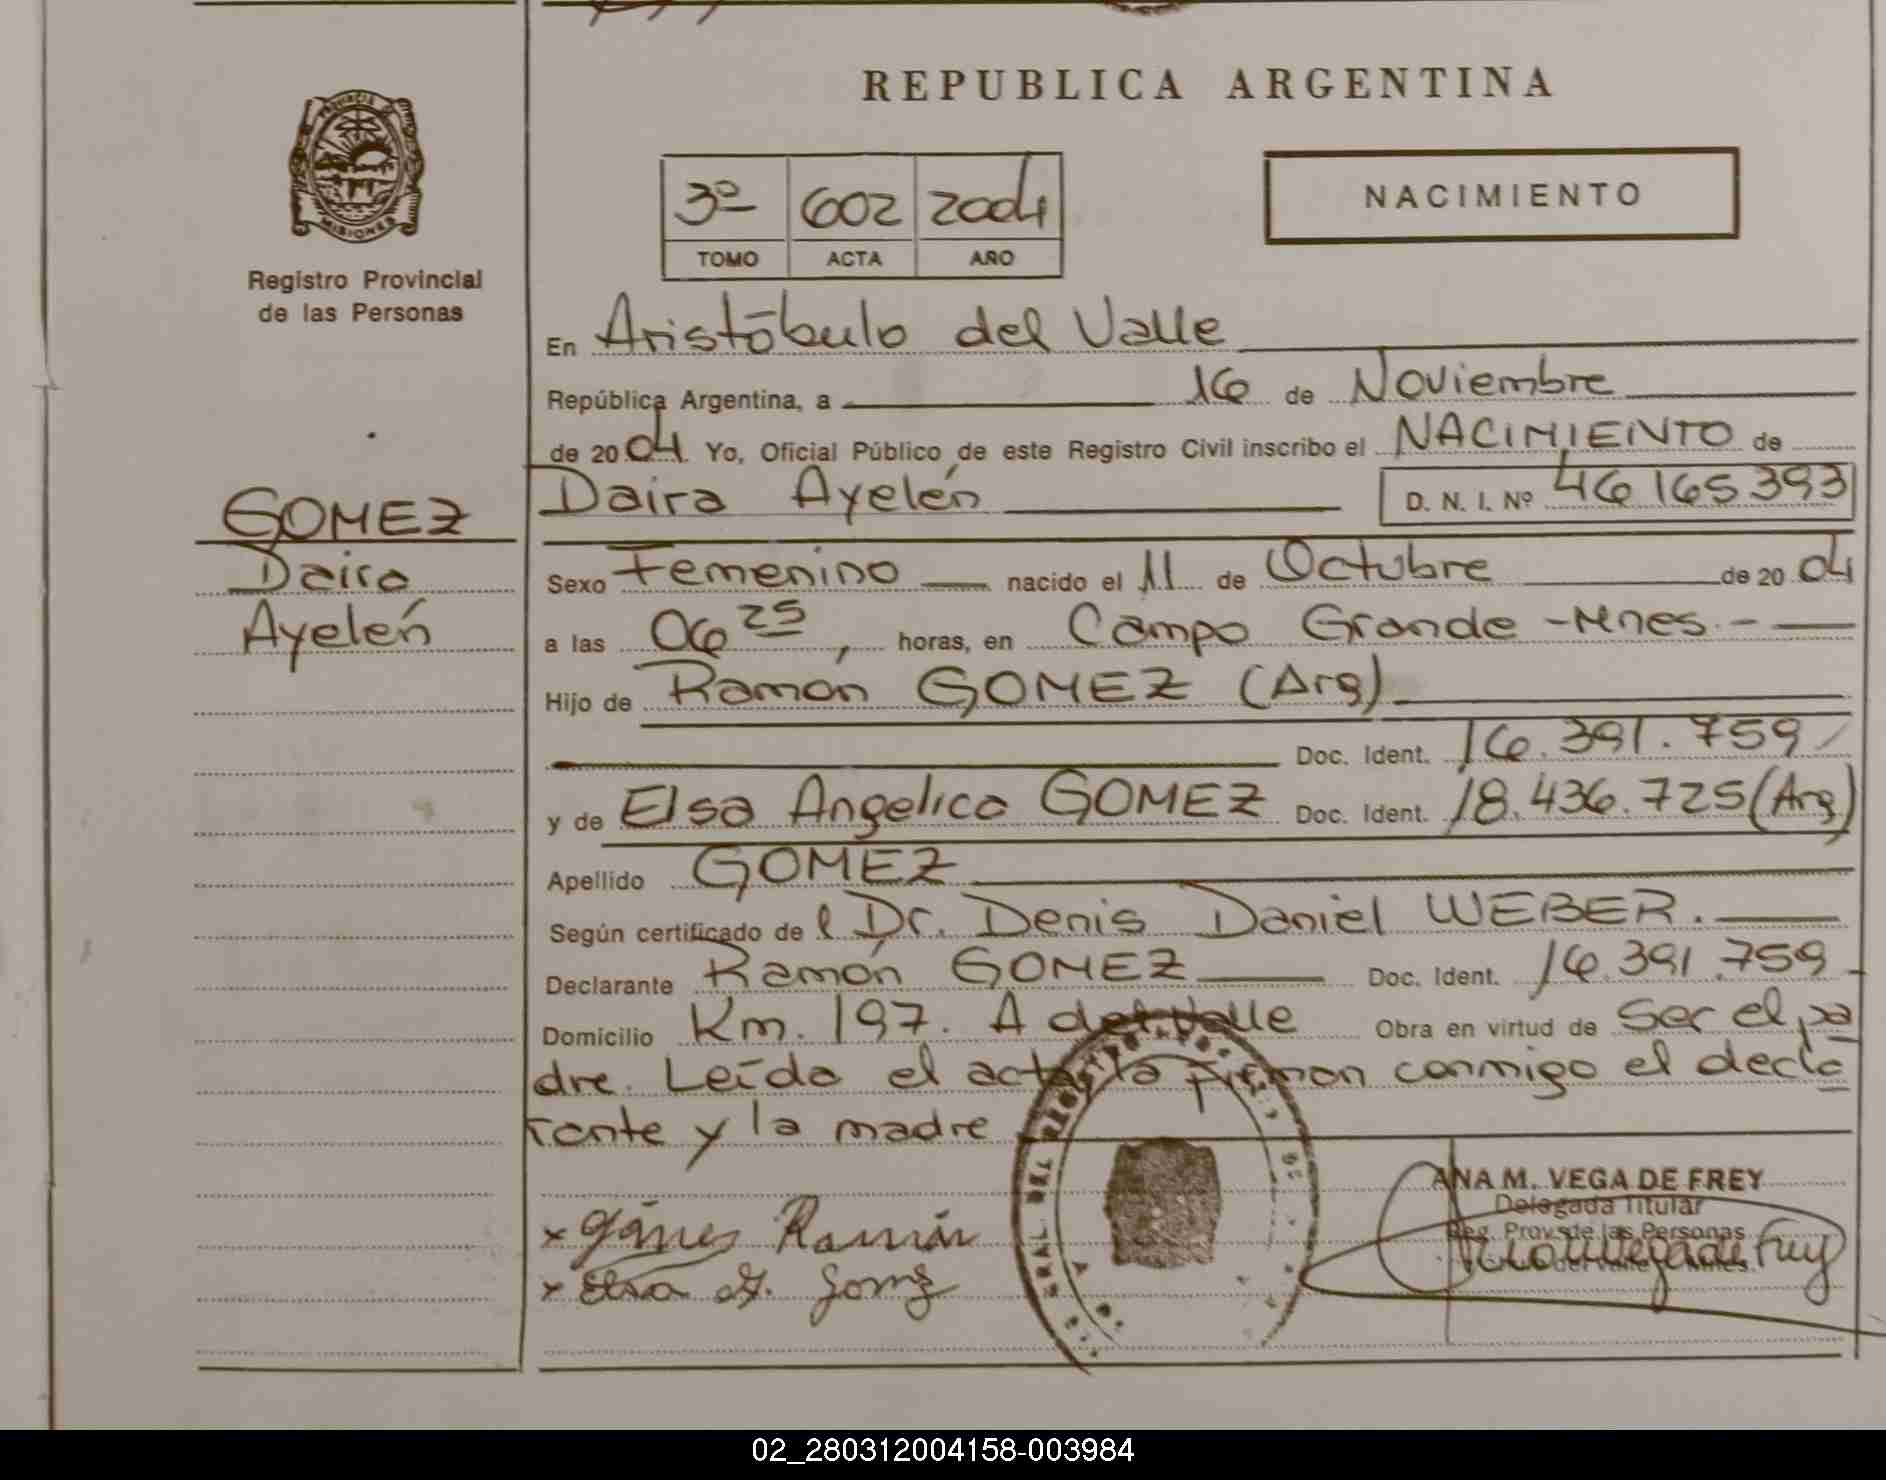 PROVINCIA DE
MISIONES
Registro Provincial
de las Personas
GOMEZ
Daira
Ayelén
REPUBLICA ARGENTINA
3º 602 2004
TOMO ACTA AÑO
NACIMIENTO
En Aristóbulo del Valle
República Argentina, a 16 de Noviembre
de 2004 Yo, Oficial Público de este Registro Civil inscribo el NACIMIENTO de
Daira Ayelén D. N. I. Nº 46165393
Sexo Femenino nacido el 11 de Octubre de 2004
a las 06 25, horas, en Campo Grande - Mnes -
Hijo de Ramón GOMEZ (Arg)
Doc. Ident. 16.391.759
y de Elsa Angelica GOMEZ Doc. Ident. 18.436.725 (Arg)
Apellido GOMEZ
Según certificado de l Dr. Denis Daniel WEBER.
Declarante Ramón GOMEZ Doc. Ident. 16.391.759
Domicilio Km. 197. A del Valle Obra en virtud de Ser el pa
dre. Leída el acta, la firman conmigo el decla
rante y la madre
ANA M. VEGA DE FREY
Delegada Titular
Reg. Prov. de las Personas
x Gómes Ramón
x Elsa A. Gomez
02_280312004158-003984